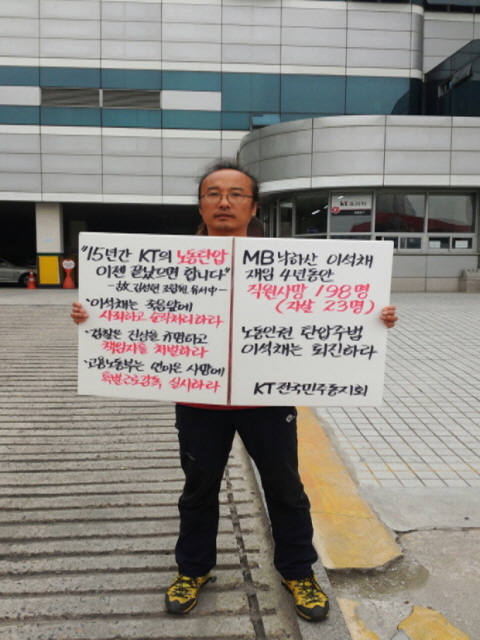 "15년간 KT의 노동탄압
이젠 끝났으면 합니다"
-故 김성현 조합원 유서中-
"이석채는 죽음앞에
사죄하고 순직처리하라
·검찰은 진상을 규명하고
책임자를 처벌하라
·고용노동부는 연이은 사망에
특별근로감독 실시하라
MB낙하산 이석채
재임 4년동안
직원사망 198명
(자살 23명)
노동인권 탄압주범
이석채는 퇴진하라
KT 전국민주동지회
kt 프라자